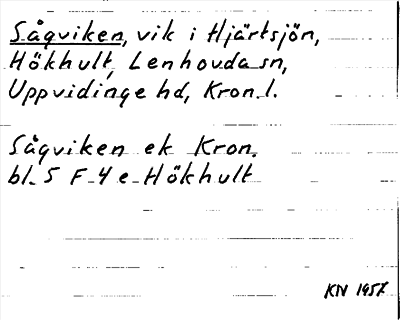 Sågviken, vik i Hjärtsjön,
Hökhult, Lenhovda sn,
Uppvidinge hd, Kron. l.
Sågviken ek Kron.
bl. 5 F-4 e Hökhult
KN 1957